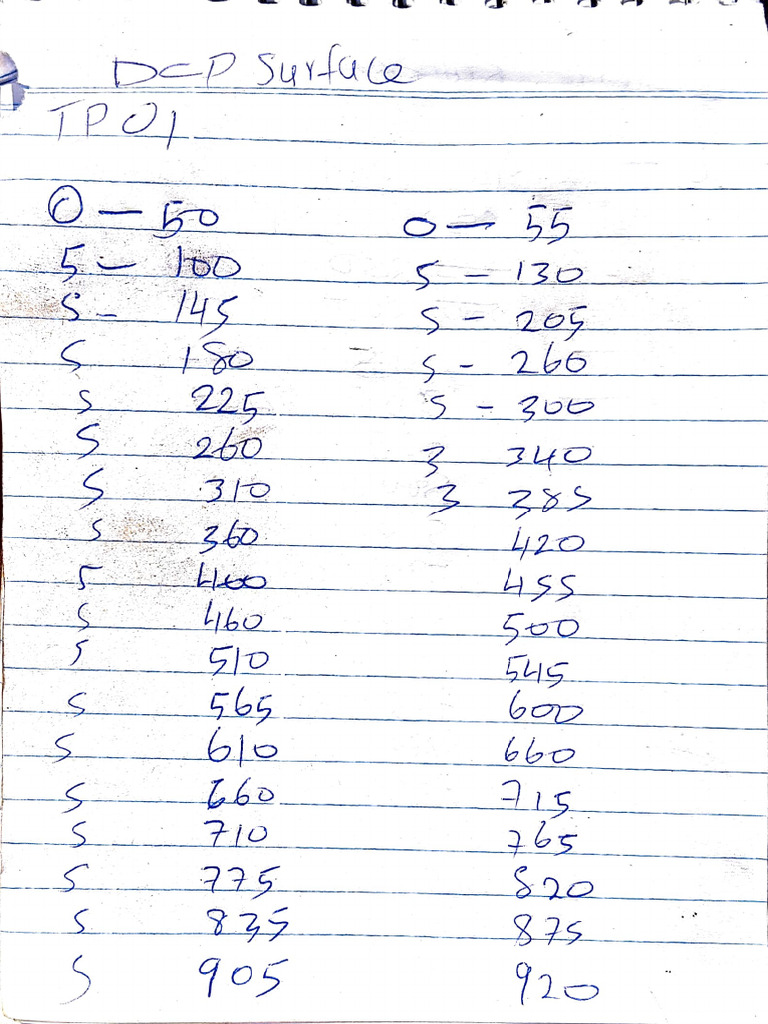 DCP Surface
TP 01
0 — 50 0 — 55
5 — 100 5 - 130
5 - 145 5 - 205
5 180 5 - 260
5 225 5 - 300
5 260 3 340
5 310 3 385
5 360 420
5 400 455
5 460 500
5 510 545
5 565 600
5 610 660
5 660 715
5 710 765
5 775 820
5 835 875
5 905 920